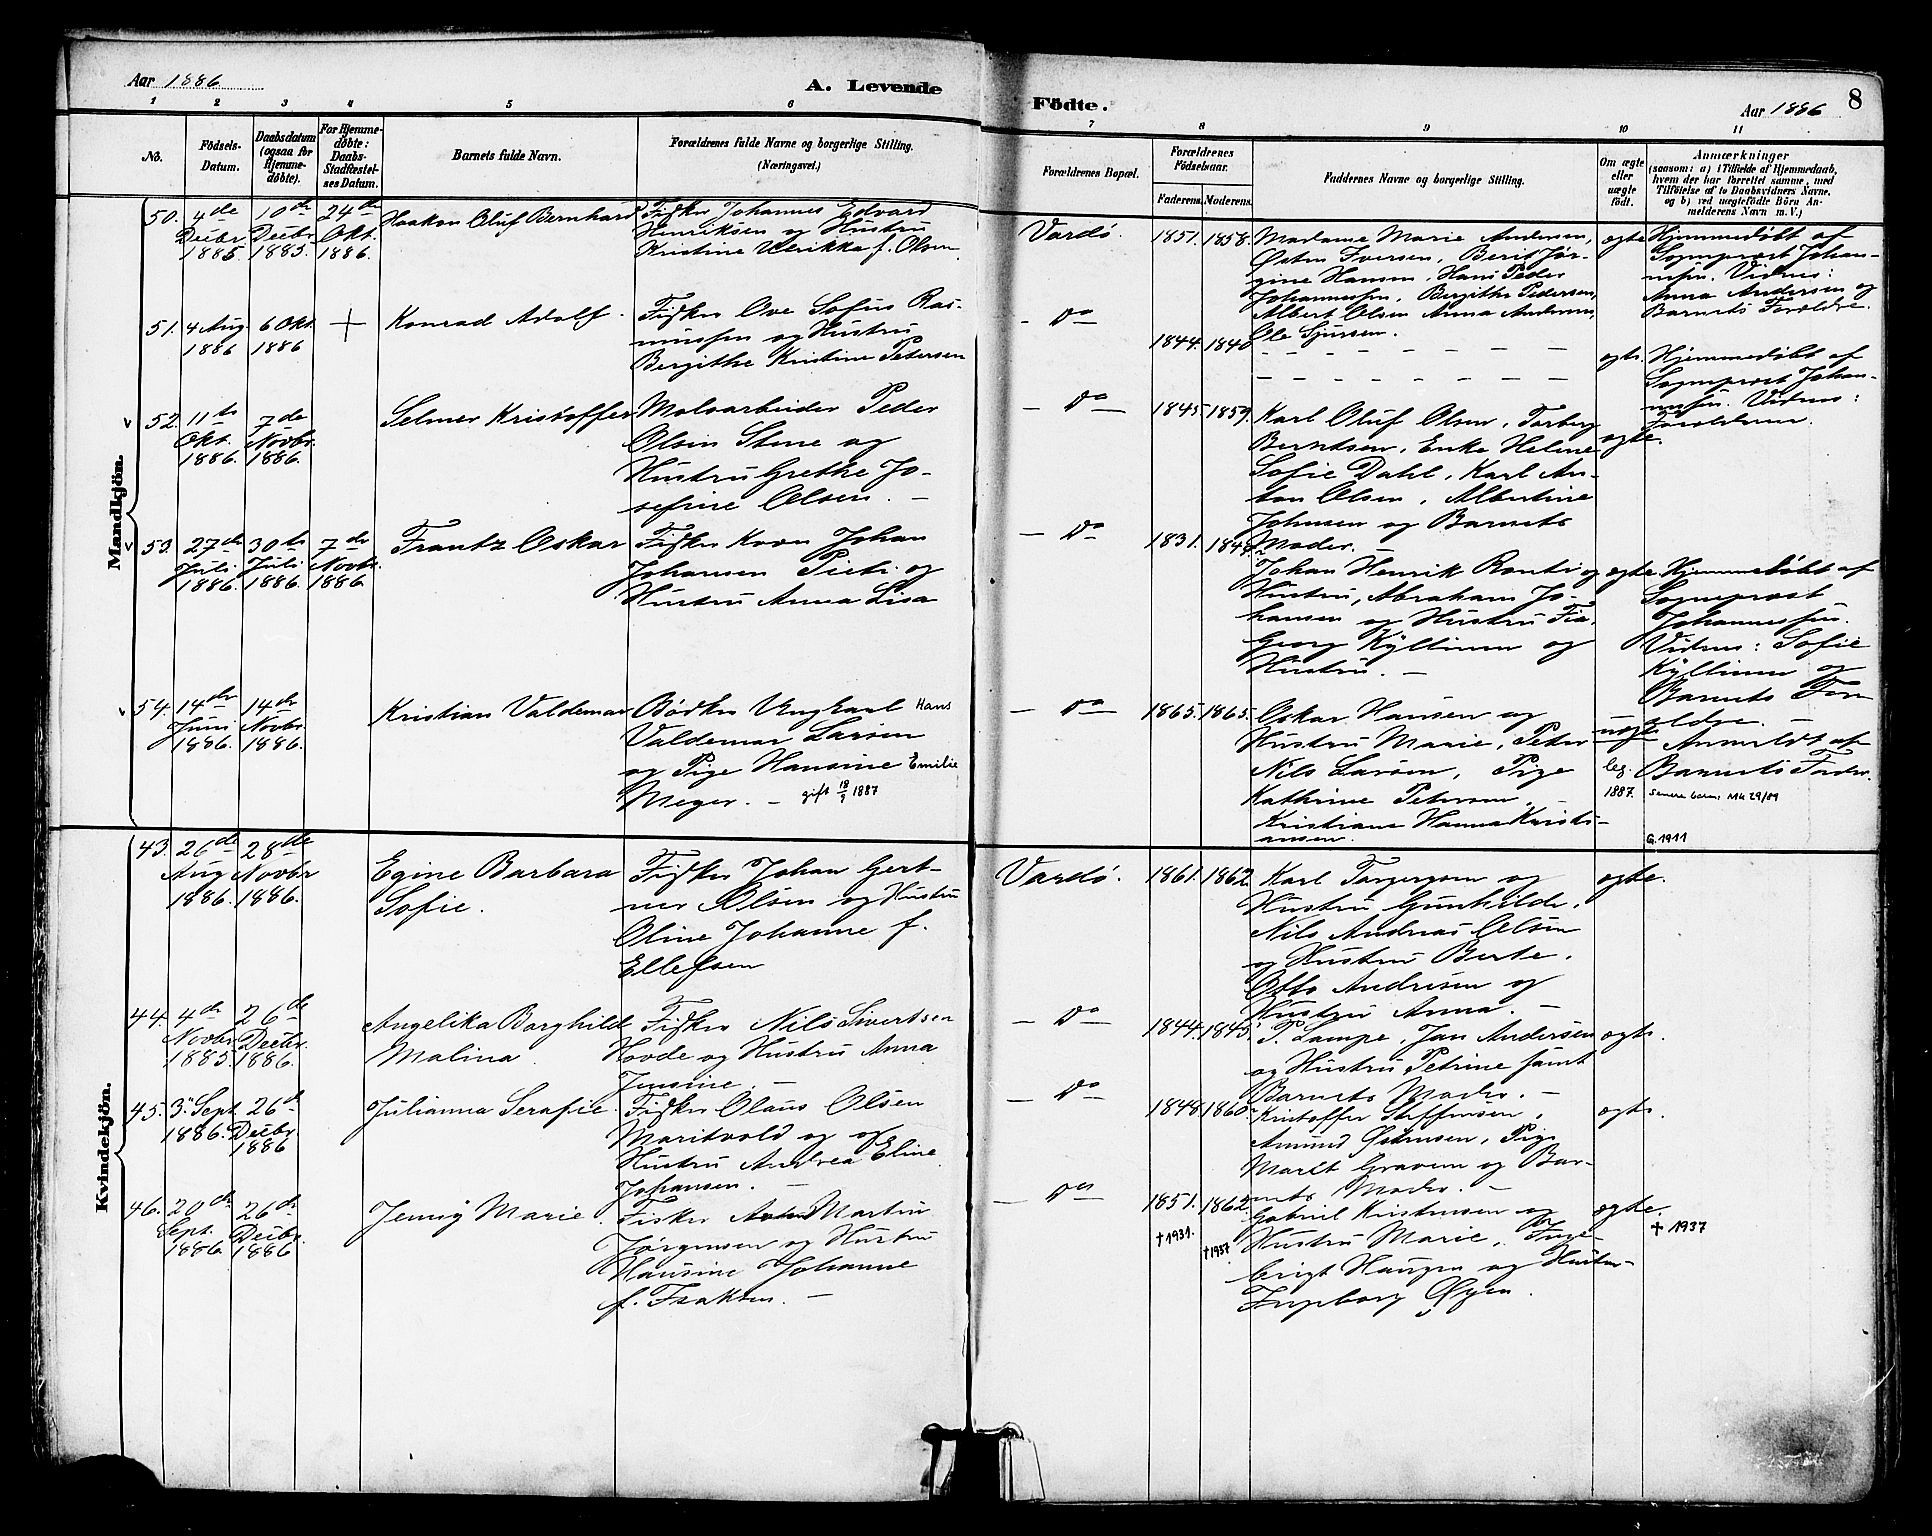 Aar 1886
A. Levende
Födte.
Aar 1886
8
1 2 3 4 5 6 7 8 9 10 11
No.
Födsels-
Datum.
Daabsdatum
(ogsaa for
Hjemme-
döbte).
For Hjemme-
døbte:
Daabs-
Stadfæstel-
ses Datum.
Barnets fulde Navn.
Forældrenes fulde Navne og borgerlige Stilling.
(Næringsvei.)
Forældrenes Bopæl.
Forældrenes
Födselsaar.
Faderens. Moderens.
Faddernes Navne og borgerlige Stilling.
Om ægte
eller
uægte
födt.
Anmærkninger
(saasom: a) i Tilfælde af Hjemmedaab,
hvem der har forrettet samme, med
Tilföielse af to Daabsvidners Navne,
og b) ved uægtefödte Börn An-
melderens Navn m. V.)
Mandkjön.
50.
4de
Decbr
1885.
10de
Decbr
1885.
24de
Okt.
1886.
Haakon Oluf Bernhard
Fisker Johannes Edvard
Henriksen og Hustru
Kristine Ulrikka f. Olsen
Vardø.
1851. 1858.
Madame Marie Andersen,
Østen Iversen, Berit Jør-
gine Hansen, Hans Peder
Johannessen, Bergithe Pedersen,
Albert Olsen Anna Andersen,
Ole Sjursen.
ægte
Hjemmedøbt af
Sogneprest Johan-
nessen. Vidner:
Anna Andersen og
Barnets Forældre.
51.
4 Aug
1886
6 Okt.
1886
+
Konrad Adolf.
Fisker Ove Sofus Ras-
mussen og Hustru
Bergithe Kristine Petersen
- Do
1844. 1840
- - - - - - - -
- - - - - - - -
ægte.
Hjemmedøbt af
Sogneprest Johan-
nessen. Vidner:
Forældrene.
v 52.
11te
Okt.
1886.
7de
Novbr.
1886.
Selmer Kristoffer
Moloarbeider Peder
Olsen Stene og
Hustru Grethe Jo-
sefine Olsen. -
- Do -
1845. 1859.
Karl Oluf Olsen, Torberg
Berntsen, Enke Helene
Sofie Dahl, Karl An-
ton Olsen, Albertine
Johnsen og Barnets
Moder.
ægte.
v 53.
27de
Juli
1886.
30te
Juli
1886.
7de
Novbr
1886
Frantz Oskar
Fisker Kvæn Johan
Johansen Pieti og
Hustru Anna Lisa
- Do
1831.
Johan Henrik Ronti og
Hustru, Abraham Jo-
hansen og Hustru Fia.
Georg Kyllinen og
Hustru. -
ægte
Hjemmedøbt af
Sogneprest
Johannessen.
Vidner: Sofie
Kyllinen og
Barnets For
ældre. -
v 54.
14de
Juni
1886.
14de
Novbr
1886.
Kristian Valdemar
Bødker Ungkarl Hans
Valdemar Larsen
og Pige Hansine Emilie
Meyer. - gift 18/9 1887
- Do -
1865. 1865.
Oskar Hansen og
Hustru Marie, Peter
Nils Larsen, Pige
Kathrine Petersen, -
Kristiane Hanna Kristi-
ansen.
uægte
leg.
1887.
Anmeldt af
Barnets Fader.
G. 1911
Kvindekjön.
43.
26de
Aug
1886.
28de
Novbr
1886.
Egine Barbara
Sofie.
Fisker Johan Gert-
ner Olsen og Hustru
Oline Johanne f.
Ellefsen
Vardø.
1861. 1862
Karl Torgersen og
Hustru Gunhilde,
Nils Andreas Olsen
og Hustru Berte,
Otto Andersen og
Hustru Anna. -
ægte.
44.
4de
Novbr
1885
26de
Decbr.
1886.
Angelika Borghild
Malina.
Fisker Nils Sivertsen
Hovde og Hustru Anna
Jensine. -
- Do -
1844. 1845.
P. Lampe, Jan Andersen
og Hustru Petrine samt
Barnets Moder. -
ægte.
45.
3. Sept
1886.
26de
Decbr
1886
Julianna Serafie.
Fisker Olaus Olsen
Maritvold og og
Hustru Andrea Eline
Johansen. -
- Do -
1848 1860
Kristoffer Steffensen,
Amund Østensen, Pige
Marit Graven og Bar-
nets Moder. -
ægte.
46.
20de
Sept.
1886
26de
Decbr.
1886
Jenny Marie.
Fisker Martin
Jørgensen og Hustru
Hansine Johanne
f. Isaksen. -
- Do -
1851. 1862.
† 1931.
† 1937
Gabriel Kristensen og
Hustru Marie, Inge-
brigt Haugen og Hustru
Ingeborg Øyen.
ægte.
† 1937